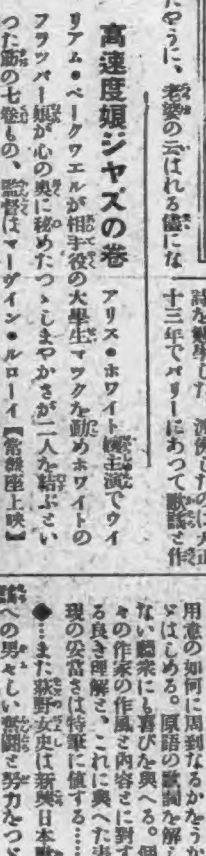 たやうに、老婆の云はれる儘にな
高速度娘ジヤズの巻
アリス●ホワイト孃主演でウイ
リアム●ベークウエルが相手役の大學生マツクを勤めホワイトの
フラツパー娘が心の奥に秘めたつゝしまやかさが二人を結ぶとい
つた筋の七巻もの、監督はマーヴイン●ルローイ【常盤座上映】
十三年でパリーにあつて歌謡と作
用意の如何に周到なるかをうか
ゞはしめる。原語の歌詞を解し
ない聽衆にも喜びを與へる。個
々の作家の作風と内容とに對す
る良き理解と、これに與へた表
現の妥當さは特筆に値する……
◆…また荻野女史は新興日本歌
謡への男々しい奮鬪と努力をつゞ